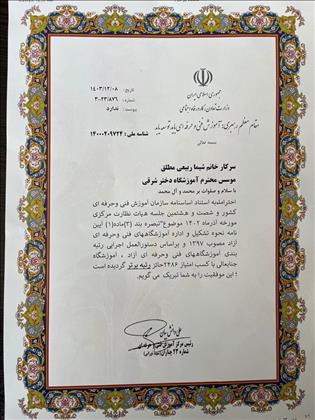 تاریخ: ۱۴۰۳/۱۲/۰۸
شماره: ۳۰۲۳/۸۷۶
پیوست: ندارد
جمهوری اسلامی ایران
وزارت تعاون، کار و رفاه اجتماعی
مقام معظم رهبری: آموزش فنی و حرفه ای باید توسعه یابد
بسمه تعالی
شناسه ملی: ۱۴۰۰۰۲۰۹۷۲۴
سرکار خانم شیما ربیعی مطلق
موسس محترم آموزشگاه دختر شرقی
با سلام و صلوات بر محمد و آل محمد
احتراماً به استناد اساسنامه سازمان آموزش فنی و حرفه ای
کشور و شصت و هشتمین جلسه هیات نظارت مرکزی
مورخه آذرماه ۱۴۰۲ موضوع "تبصره بند (۳) ماده (۱) آیین
نامه نحوه تشکیل و اداره آموزشگاههای فنی و حرفه ای
آزاد مصوب ۱۳۹۷ و براساس دستورالعمل اجرایی رتبه
بندی آموزشگاههای فنی و حرفه ای آزاد ، آموزشگاه
جنابعالی با کسب امتیاز ۲۴۸۶ حائز رتبه برتر گردیده است
؛ این موفقیت را به شما تبریک می گویم.
رئیس مرکز آموزش فنی و حرفه ای